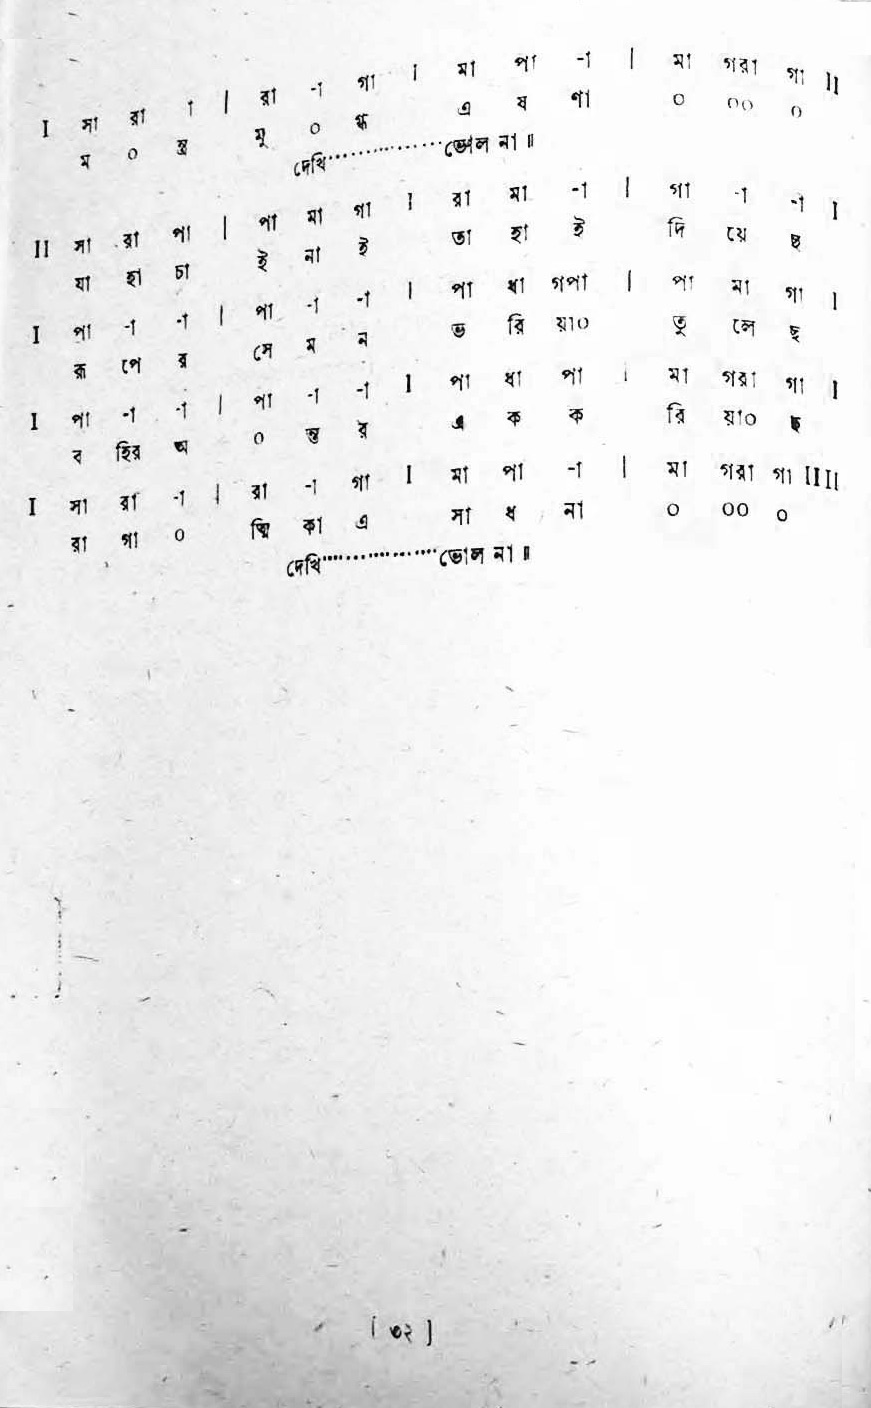 I সা রা া | রা -া গা I মা পা -া | মা গরা গা II
ম ০ ন্ত্র মু ০ গ্ধ এ ষ ণা ০ ০০ ০
দেখি··················ভোল না॥
II সা রা পা | পা মা গা I রা মা -া | গা -া -া I
যা হা চা ই না ই তা হা ই দি য়ে ছ
I পা -া -া | পা -া -া I পা ধা গপা | পা মা গা I
রূ পে র সে ম ন ভ রি য়া০ তু লে ছ
I পা -া -া | পা -া -া I পা ধা পা | মা গরা গা I
ব হির অ ০ ন্ত র এ ক ক রি য়া০ ছ
I সা রা -া | রা -া গা I মা পা -া | মা গরা গা II II
রা গা ০ ত্মি কা এ সা ধ না ০ ০০ ০
দেখি··················ভোল না॥
[ ৩২ ]